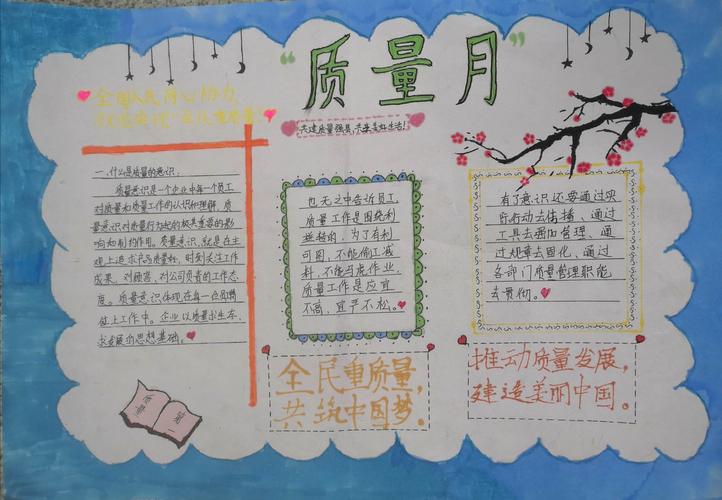 “质量月”
全国人民齐心协力
共建质量强县，共享美好生活！
一.什么是质量的意识：
质量意识是一个企业中每一个员工
对质量和质量工作的认识和理解，质
量意识对质量行为起的极其重要的影
响和制约作用。质量意识，就是在主
观上追求产品质量好，时刻关注工作
成果，对顾客、对公司负责的工作态
度。质量意识体现在每一位员工
岗位上工作中。企业以质量求生存、
求发展的思想基础。
质量
第一
也无之中告诉员工，
质量工作是围绕利
益转的，为了有利
可图，不能偷工减
料，不能过度作业，
质量工作是应宜
不高，宜严不松。
有了意识还要通过实
际行动去衔接、通过
工具去强加管理、通
过规章去固化，通过
各部门质量管理职能
去贯彻。
全民重质量，
共筑中国梦。
推动质量发展，
建造美丽中国。